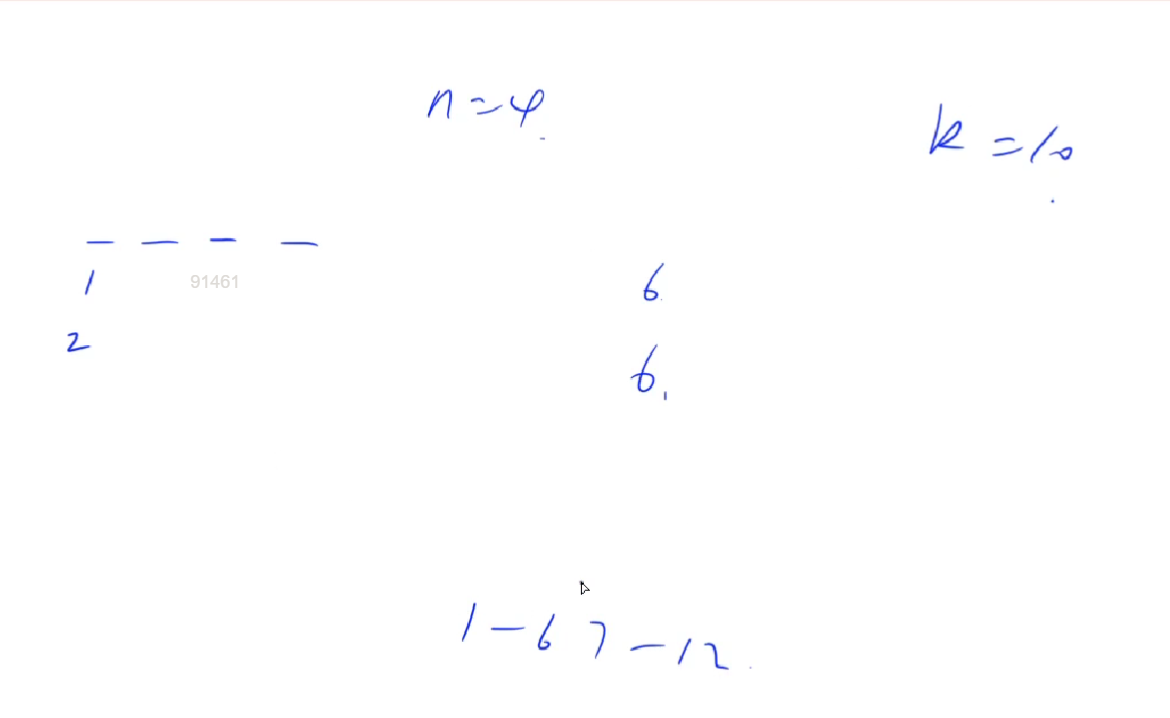 n=4.
k=10.
1
91461
6
2
6.
1-6 7-12.